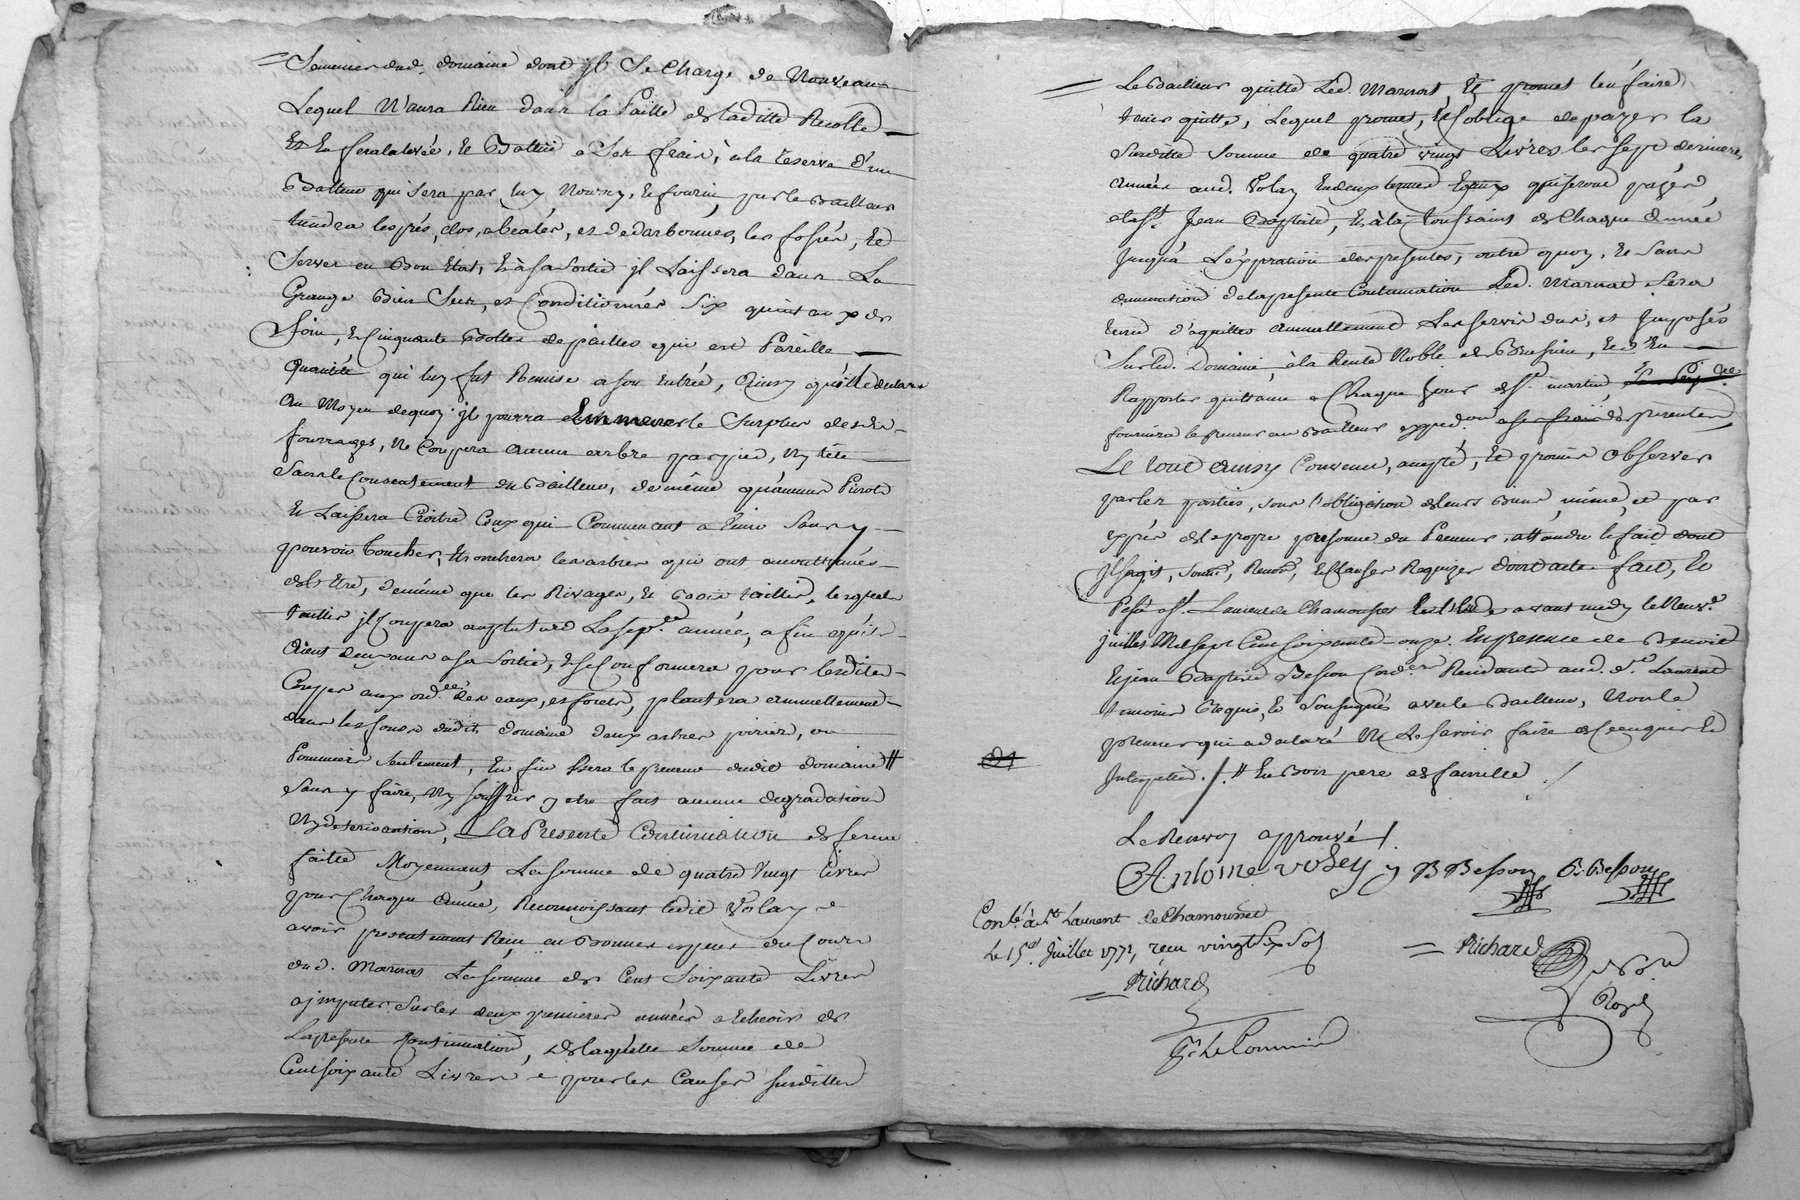 domaine dont jl Se Charge de Nouveau
Lequel N'aura Rien dans la Paille de laditte Recolte
Et En fera la levée, et Battue a Ses frais, a la reserve d'un
Batteur qui Sera par luy Nourry, et fourni par le Bailleur
tiendra les prés, clos, les fossés, et
Serves en Bon Etat, Et à Sa Sortie jl Laissera dans La
Grange Bien Secs, et Conditionnés Six quintaux de
foin, et Cinquante Bottes de pailles qui est Pareille
Quantité qui luy fut Remise a Son Entrée, Ainsy qu'il le declare
Au Moyen de quoy jl pourra Emmener le Surplus desdits
fourrages, Ne Coupera Aucun arbre par pied, Ny tête
Sans le Consentement du Bailleur, de même qu'aucuns Pivots
Et Laissera Croître Ceux qui Commencent a Venir Sans y
pouvoir Toucher, Ebranchera les arbres qui ont accoutumés
de l'Etre, de même que les Rivages, et Bois taillis, lesquels
taillis jl Coupera au plus tard La Sep.e année, afin qu'ils
aient deux ans a Sa Sortie, Et Se Conformera pour lesdites
Coupes aux ord.ces des Eaux, et forets, plantera annuellement
dans les fonds dudit domaine deux arbres poirier, ou
Pommier Seulement, En fin Usera le preneur dudit domaine #
Sans y faire, Ny Souffrir y etre fait aucune degradation
Ny deterioration, La Presente Continuation de ferme
faitte Moyennant La Somme de quatre Vingt Livres
pour Chaque Année, Reconnoissant ledit Volay
avoir presentement Reçu en Bonnes especes du Cours
dud. Marnas La Somme de Cent Soixante Livres
a jmputer Sur les deux premieres années a Echeoir de
La presente Continuation, de laquelle Somme de
Cent Soixante Livres pour les Causes Susdittes
Le Bailleur quitte Led. Marnas Et promet l'en faire
tenir quitte, Lequel promet, Et S'oblige de payer la
Susditte Somme de quatre vingt Livres les Sept dernieres
années aud. Volay En deux termes Egaux qui Seront payés
a la St. Jean Baptiste, Et à la toussaint de Chaque Année
jusqu'a L'éxpiration des presentes, outre quoy, Et Sans
diminution de la presente Continuation Led. Marnas Sera
tenu d'aquitter Annuellement Les Servis dus, et Jmposés
Sur led. Domaine, à la Rente Noble de Et d'En
Rapporter quittance a Chaque jour de St. martin
fournira le preneur au Bailleur exped.on a Ses frais des presentes
Le tout Ainsy Convenu, accepté, Et promis Observer
par les parties, Sous l'obligation de leurs Biens, même, et par
exprès de la propre personne du Preneur, attendu le fait dont
jl S'agit, Soum.s, Renon.s, Et Clauses Requises dont acte. fait, Et
Passé a St. Laurent de Chamousset avant midy le Neuv.e
juillet Mil Sept Cent Soixante onze. En presence de Benoit
Et jean Baptiste Besson Cord.ers Residants aud. St. Laurent
temoins Requis, Et Soussignés avec le Bailleur, Non le
preneur qui a declaré Ne Le Savoir faire de Ce enquis Et
Jnterpellé ./. # En Bon pere de famille ./
Le Renvoy approuvé /.
Antoine Volay B Besson B. Besson
Con.lé à St Laurent de Chamousset
Le 15e. Juillet 1771, reçu vingt Six Sols
Richard
Richard